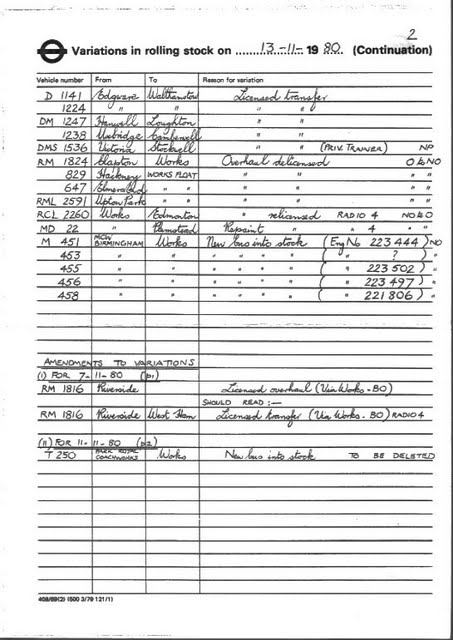 2
Variations in rolling stock on 13-11- 19 80. (Continuation)
Vehicle number From To Reason for variation
D 1141 Edgware Walthamstow Licensed transfer
1224 " " " "
DM 1247 Hanwell Loughton " "
1238 Uxbridge Camberwell " "
DMS 1536 Victoria Stockwell " " (PRIV. TRAINER) NO
RM 1824 Clapton Works Overhaul delicensed O & NO
829 Hackney WORKS FLOAT " " "
647 " " " "
RML 2591 Upton Park " " " "
RCL 2260 Works Edmonton " relicensed RADIO 4 NO & O
MD 22 " Plumstead Repaint " " 4 " "
M 451 MCW BIRMINGHAM Works New bus into stock (Eng No 223444) NO
453 " " " " " ( " ? ) "
455 " " " " " ( " 223502) "
456 " " " " " ( " 223497) "
458 " " " " " ( " 221806) "
AMENDMENTS TO VARIATIONS
(I) FOR 7-11-80 (p1)
RM 1816 Riverside Licensed overhaul (Via Works - BO)
SHOULD READ :-
RM 1816 Riverside West Ham Licensed transfer (Via Works - BO) RADIO 4
(II) FOR 11-11-80 (p2)
T 250 PARK ROYAL COACHWORKS Works New bus into stock TO BE DELETED
408/69(2) (500 3/79 121/1)